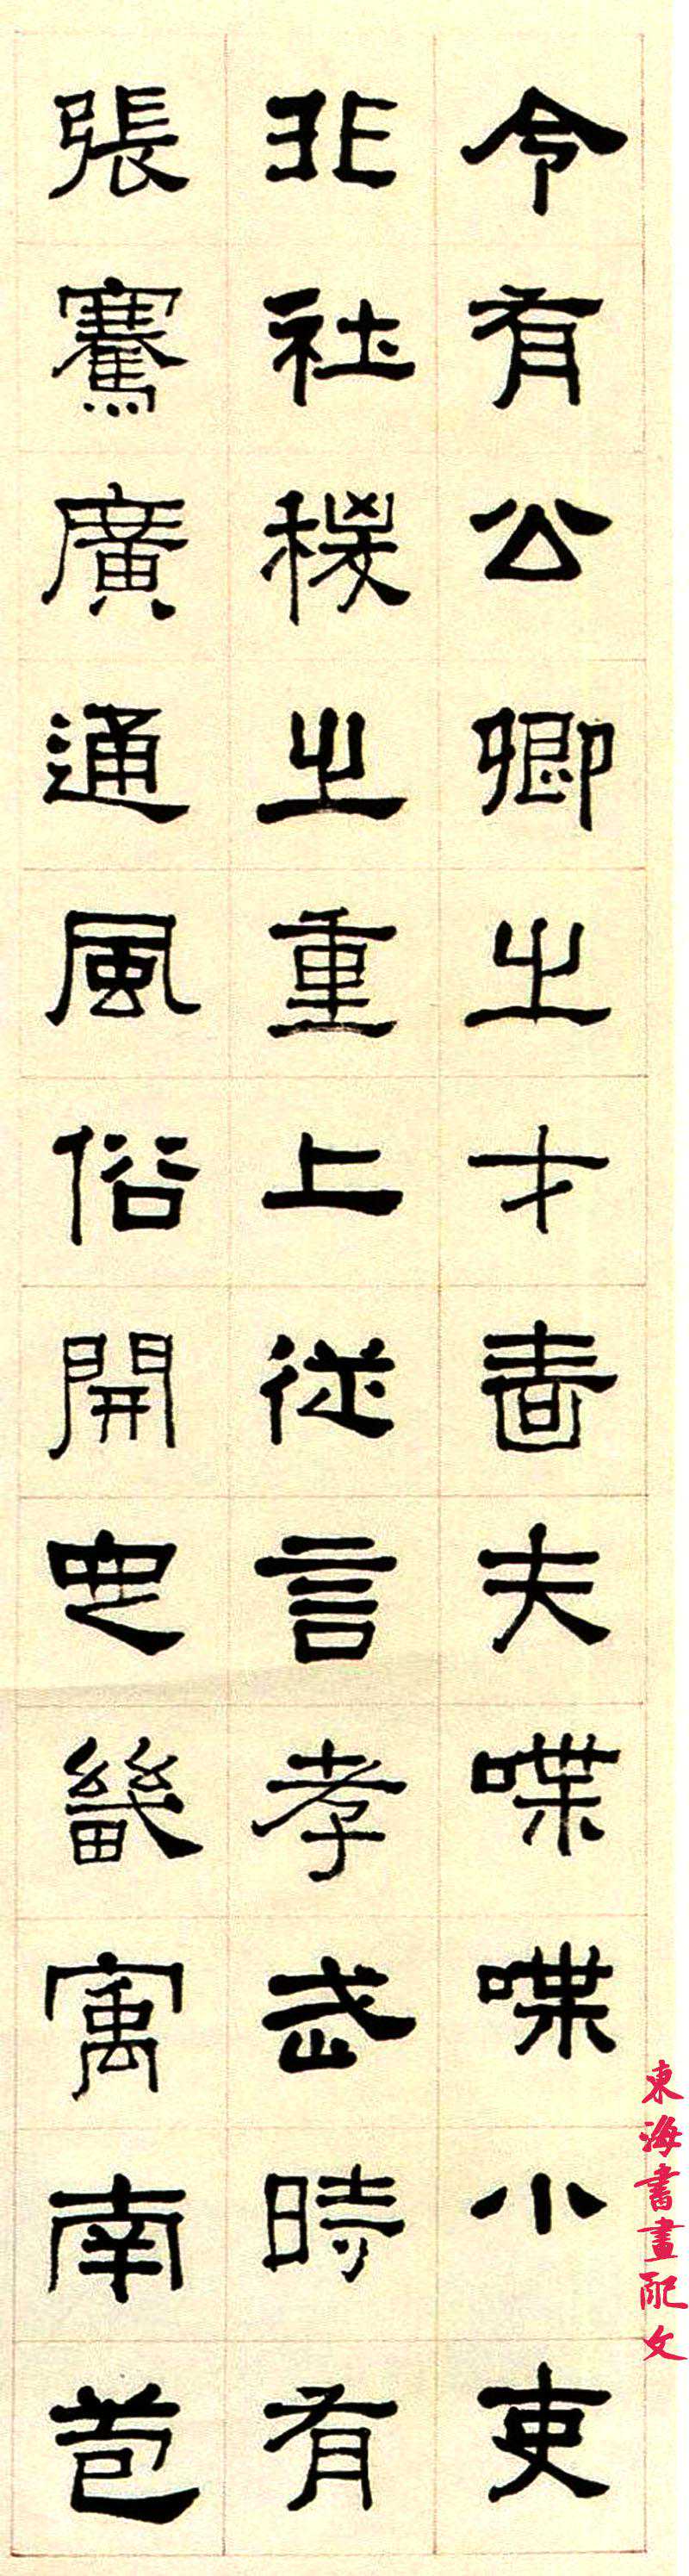 令有公卿之才嗇夫喋喋小吏
非社稷之重上從言孝武時有
張騫廣通風俗開定畿寓南苞
東海書畫配文